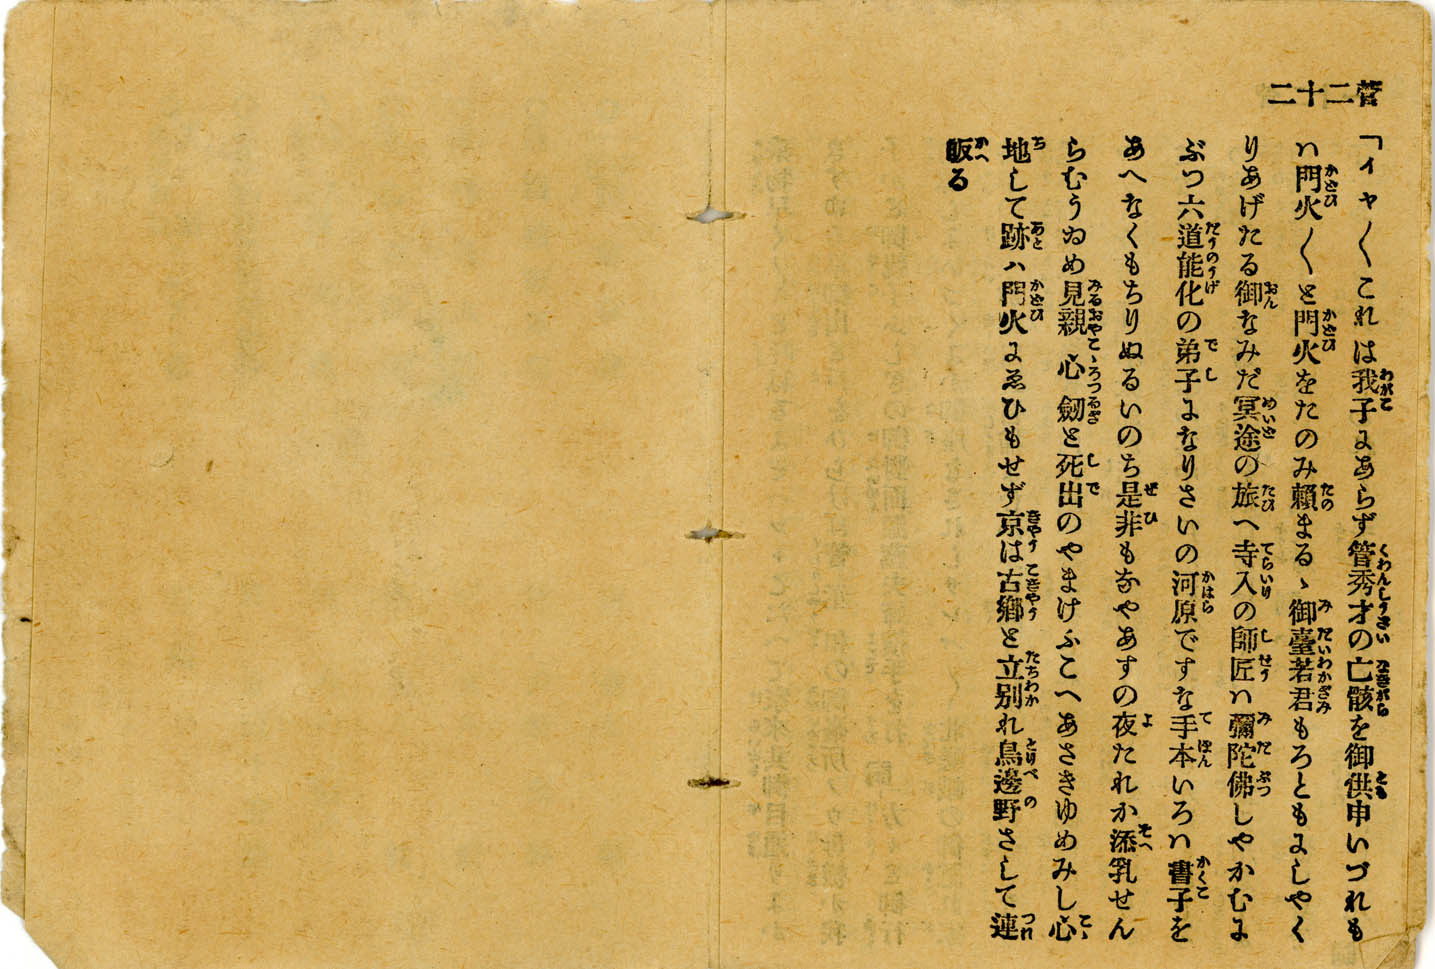 菅二十二
「イヤ〱これは我子にあらず管秀才の亡骸を御供申いづれも
ハ門火〱と門火をたのみ頼まるゝ御臺若君もろともにしやく
りあげたる御なみだ冥途の旅へ寺入の師匠ハ彌陀佛しやかむに
ぶつ六道能化の弟子になりさいの河原ですな手本いろハ書子を
あへなくもちりぬるいのち是非もなやあすの夜たれか添乳せん
らむうゐめ見親心劔と死出のやまけふこへあさきゆめみし心
地して跡ハ門火にゑひもせず京は古郷と立別れ鳥邊野さして連
皈る